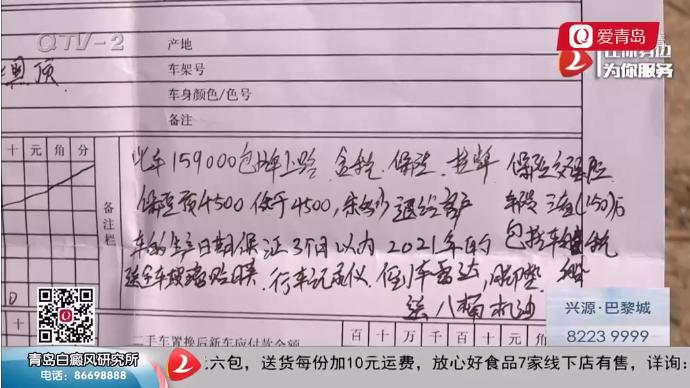 QTV-2
爱青岛
为你服务
产地
奥顶
车架号
车身颜色/色号
备注
十 元 角 分
备注栏
此车159000包牌上路 含税、保险、挂牌 保险交强险
保险预4500 低于4500,
退给客户 车损 三者(150)万
车的生产日期保证3个月以内 2021年的 包括车
送全车玻璃贴膜、行车记录仪、倒车雷达,脚垫
送八桶机油
二手车置换后新车应付款金额
百 十 万 千 百 十 元
兴源·巴黎城
8223 9999
青岛白癜风研究所
电话:86698888
六包,送货每份加10元运费,放心好食品7家线下店有售,详询: